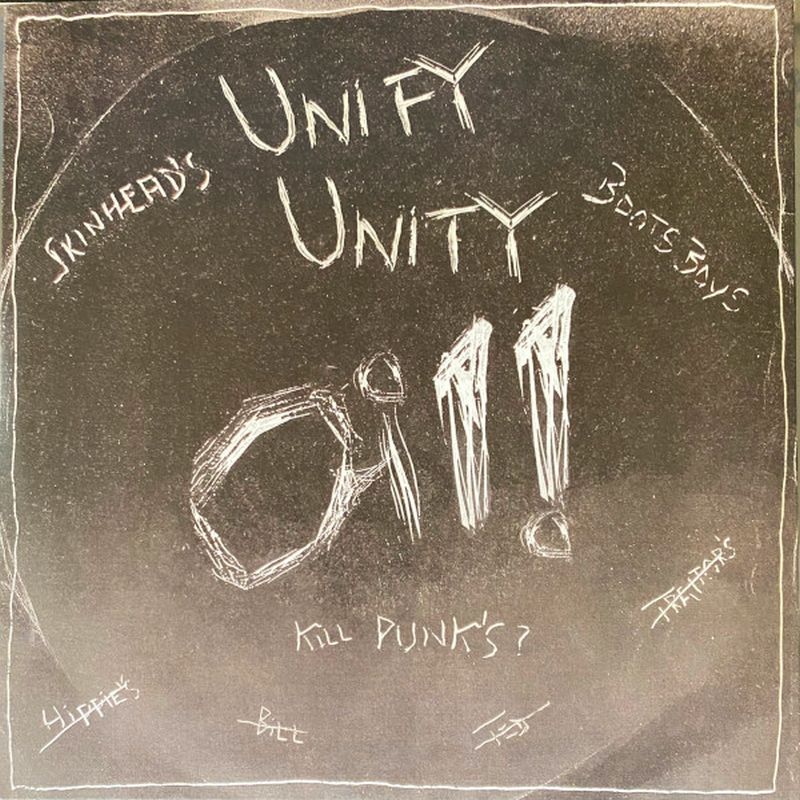 UNIFY
UNITY
SKINHEAD'S
BOOTS BOYS
Oi!!
KILL PUNK'S?
TRAITORS
HIPPIE'S
BILL